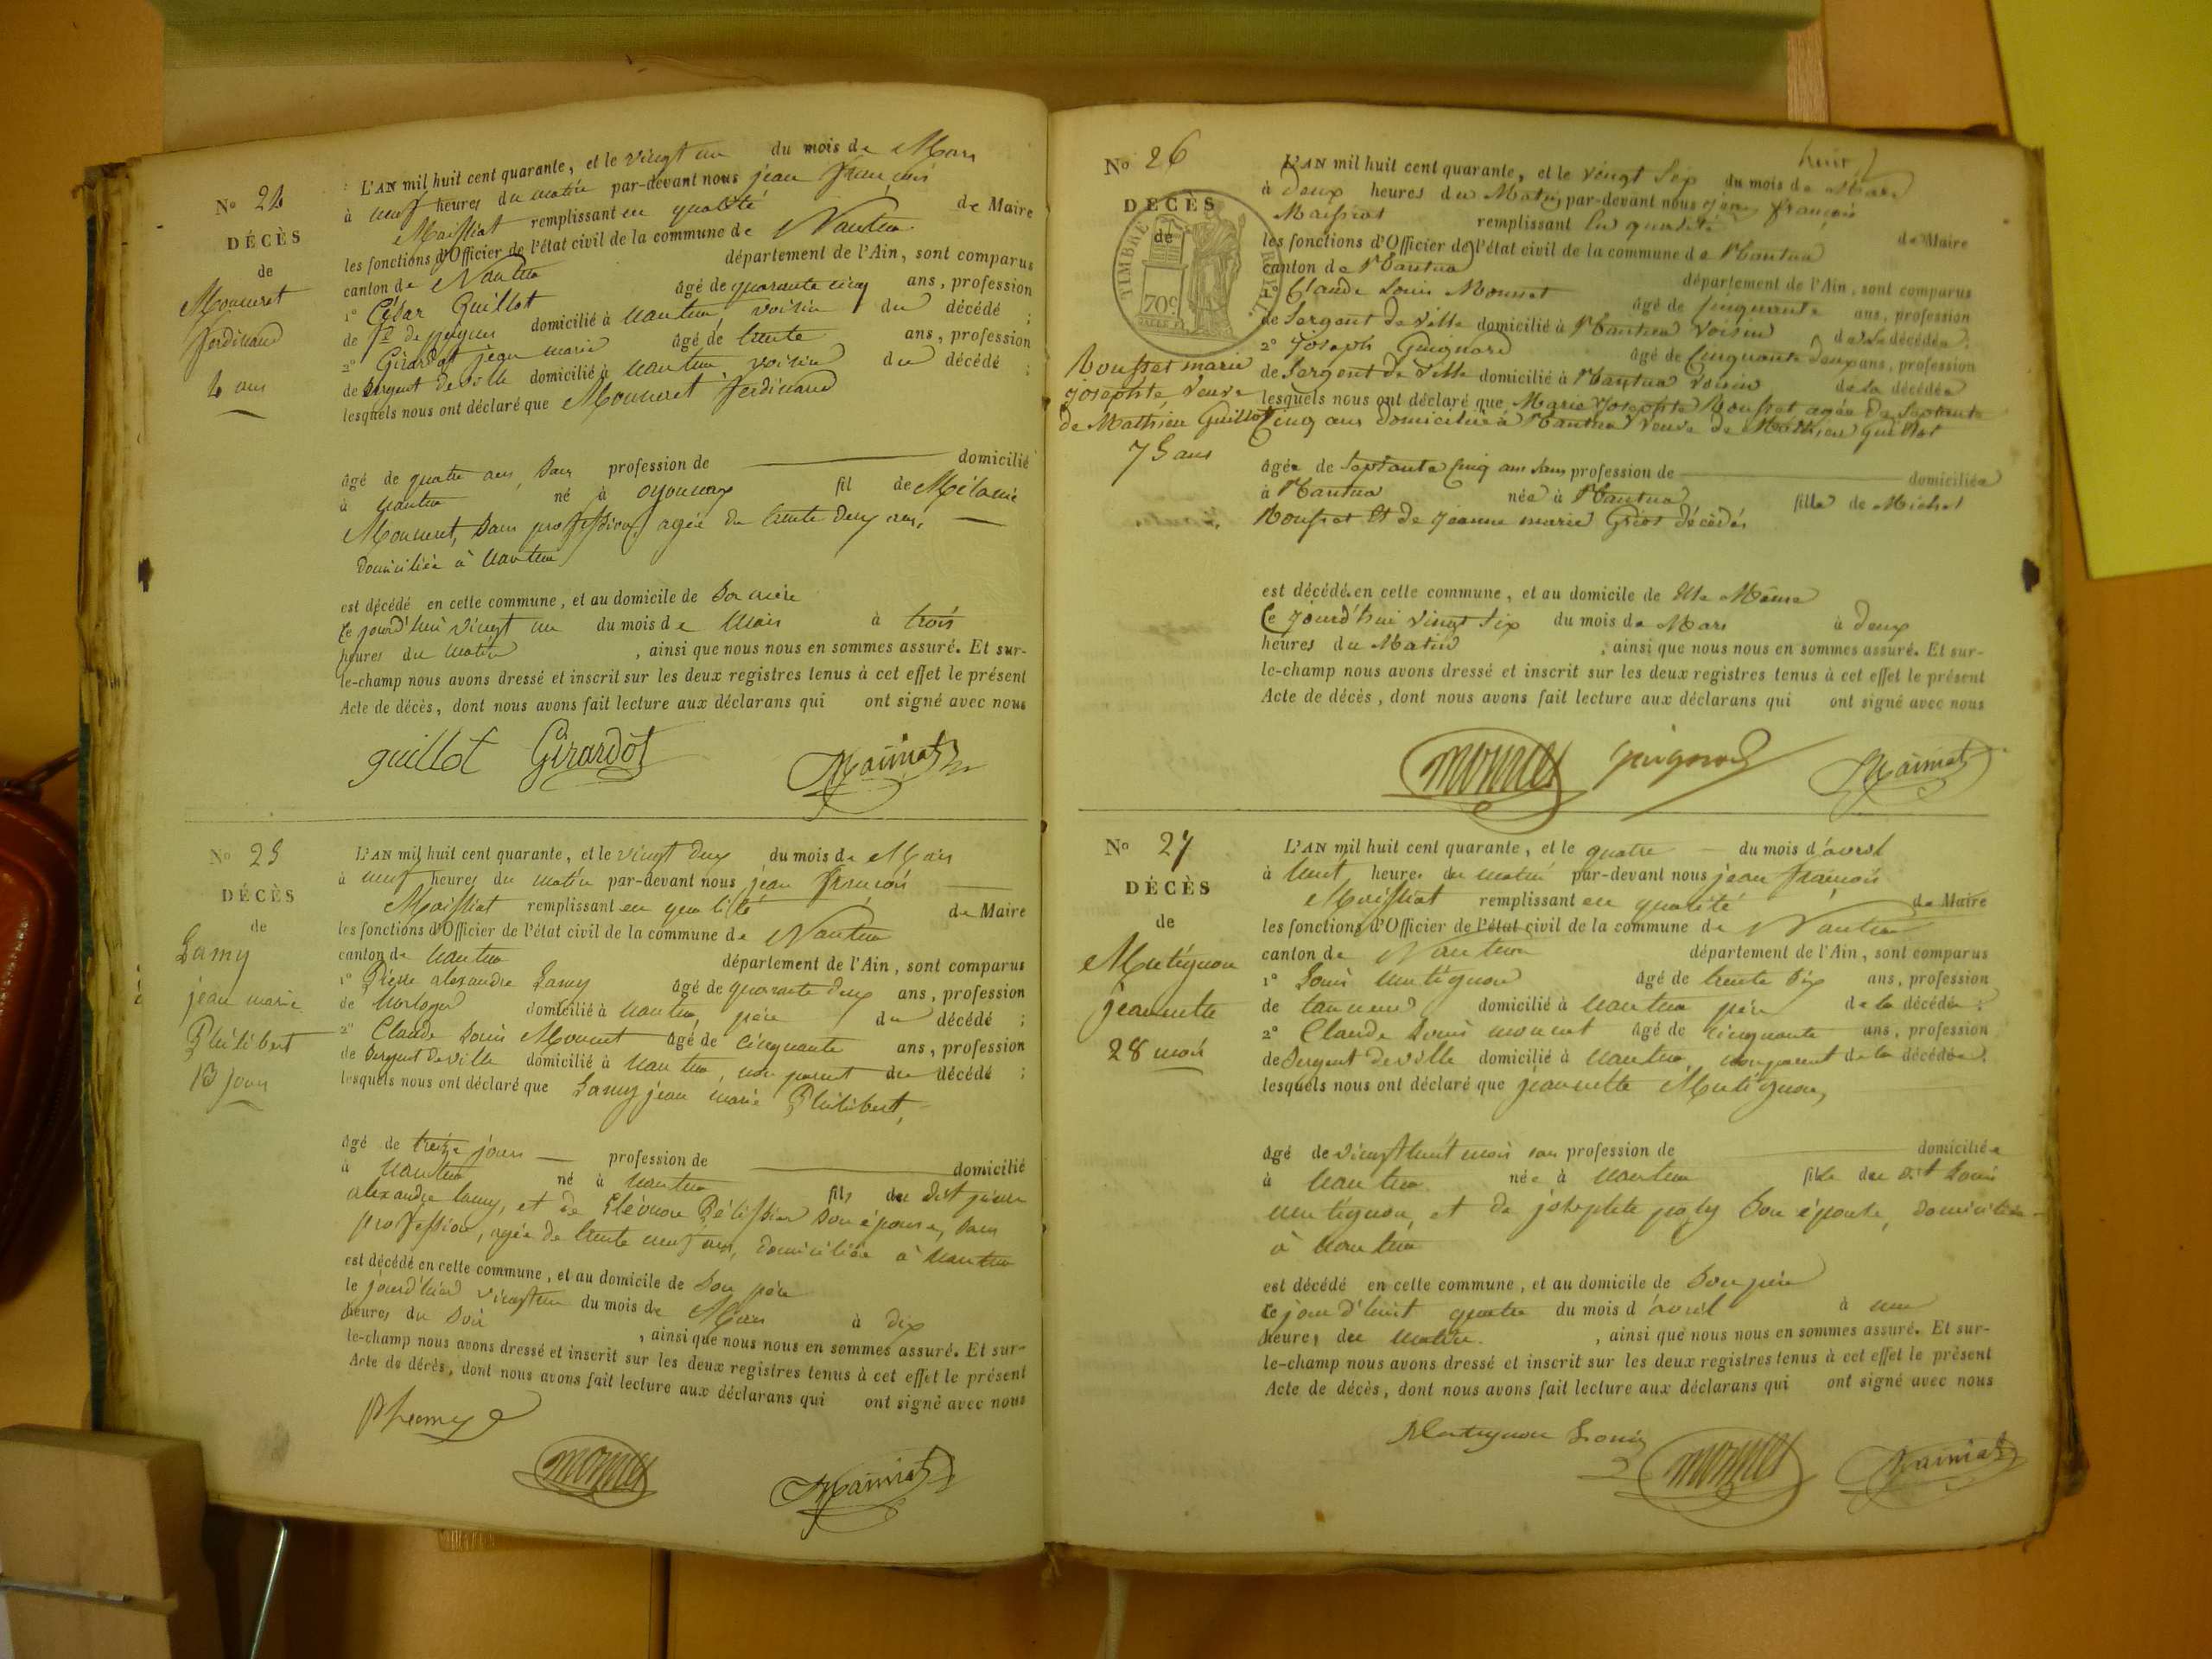 No 24
DÉCÈS
de
Mouneret
ferdinand
4 ans
L'AN mil huit cent quarante, et le vingt un du mois de Mars
à neuf heures du matin par-devant nous jean françois
Maissiat remplissant en qualité de Maire
les fonctions d'Officier de l'état civil de la commune de Nantua
canton de Nantua département de l'Ain, sont comparus
1° César Guillot âgé de quarante cinq ans, profession
de de peignes domicilié à nantua, voisin du décédé ;
2° Girardot jean marie âgé de trente ans, profession
de Sergent de ville domicilié à nantua voisin du décédé ;
lesquels nous ont déclaré que Mouneret ferdinand
âgé de quatre ans, sans profession de domicilié
à nantua né à oyonnax fil de Mélanie
Mouneret, sans profession, agée de trente deux ans,
domiciliée à nantua
est décédé en cette commune, et au domicile de sa mère
Ce jourd'hui vingt un du mois de Mars à trois
heures du matin , ainsi que nous nous en sommes assuré. Et sur-
le-champ nous avons dressé et inscrit sur les deux registres tenus à cet effet le présent
Acte de décès, dont nous avons fait lecture aux déclarans qui ont signé avec nous
guillot Girardot Maissiat
No 25
DÉCÈS
de
Lamy
jean marie
Philibert
13 jours
L'AN mil huit cent quarante, et le vingt deux du mois de Mars
à neuf heures du matin par-devant nous jean françois
Maissiat remplissant en qualité de Maire
les fonctions d'Officier de l'état civil de la commune de Nantua
canton de nantua département de l'Ain, sont comparus
1° Pierre alexandre Lamy âgé de quarante deux ans, profession
de horloger domicilié à nantua, père du décédé ;
2° Claude Louis Mounet âgé de cinquante ans, profession
de Sergent de ville domicilié à nantua, non parent du décédé ;
lesquels nous ont déclaré que Lamy jean marie Philibert,
âgé de treize jours profession de domicilié
à nantua né à nantua fils du dit pierre
alexandre lamy, et de Eléonore Pélissier son épouse, sans
profession, agée de trente neuf ans, domiciliée à nantua
est décédé en cette commune, et au domicile de son père
le jourd'hier vingt un du mois de Mars à dix
heures du soir , ainsi que nous nous en sommes assuré. Et sur-
le-champ nous avons dressé et inscrit sur les deux registres tenus à cet effet le présent
Acte de décès, dont nous avons fait lecture aux déclarans qui ont signé avec nous
Mounet Maissiat
No 26
DÉCÈS
de
TIMBRE ROYAL
70c
Rousset marie
josephte veuve
de Mathieu Guillot
75 ans
L'AN mil huit cent quarante, et le vingt six du mois de Mars
à Deux heures du Matin par-devant nous jean françois
Maissiat remplissant en qualité de Maire
les fonctions d'Officier de l'état civil de la commune de Nantua
canton de Nantua département de l'Ain, sont comparus
1° Claude Louis Mounet âgé de cinquante ans, profession
de Sergent de ville domicilié à Nantua voisin de la décédée ;
2° Joseph Guignard âgé de Cinquante deux ans, profession
de Sergent de ville domicilié à Nantua voisin de la décédée
lesquels nous ont déclaré que Marie Josephte Rousset agée de septante
Cinq ans domiciliée à Nantua veuve de Mathieu Guillot
âgée de septante cinq ans sans profession de domiciliée
à Nantua née à Nantua fille de Michel
Rousset et de jeanne marie décédés
est décédée en cette commune, et au domicile de Elle Même
Ce jourd'hui vingt six du mois de Mars à deux
heures du Matin , ainsi que nous nous en sommes assuré. Et sur-
le-champ nous avons dressé et inscrit sur les deux registres tenus à cet effet le présent
Acte de décès, dont nous avons fait lecture aux déclarans qui ont signé avec nous
Mounet guignard Maissiat
No 27
DÉCÈS
de
Mutignon
jeannette
28 mois
L'AN mil huit cent quarante, et le quatre du mois d'avril
à huit heures du matin par-devant nous jean françois
Maissiat remplissant en qualité de Maire
les fonctions d'Officier de l'état civil de la commune de Nantua
canton de Nantua département de l'Ain, sont comparus
1° Louis mutignon âgé de trente six ans, profession
de tanneur domicilié à nantua père de la décédée ;
2° Claude Louis mounet âgé de cinquante ans, profession
de Sergent de ville domicilié à nantua, non parent de la décédée ;
lesquels nous ont déclaré que jeannette Mutignon,
âgé de vingt huit mois san profession de domiciliée
à nantua née à nantua fille du dit Louis
mutignon, et de josephte son épouse, domiciliée
à nantua
est décédé en cette commune, et au domicile de son père
Ce jour d'huit quatre du mois d'avril à une
heures du matin , ainsi que nous nous en sommes assuré. Et sur-
le-champ nous avons dressé et inscrit sur les deux registres tenus à cet effet le présent
Acte de décès, dont nous avons fait lecture aux déclarans qui ont signé avec nous
Mutignon Louis Mounet Maissiat